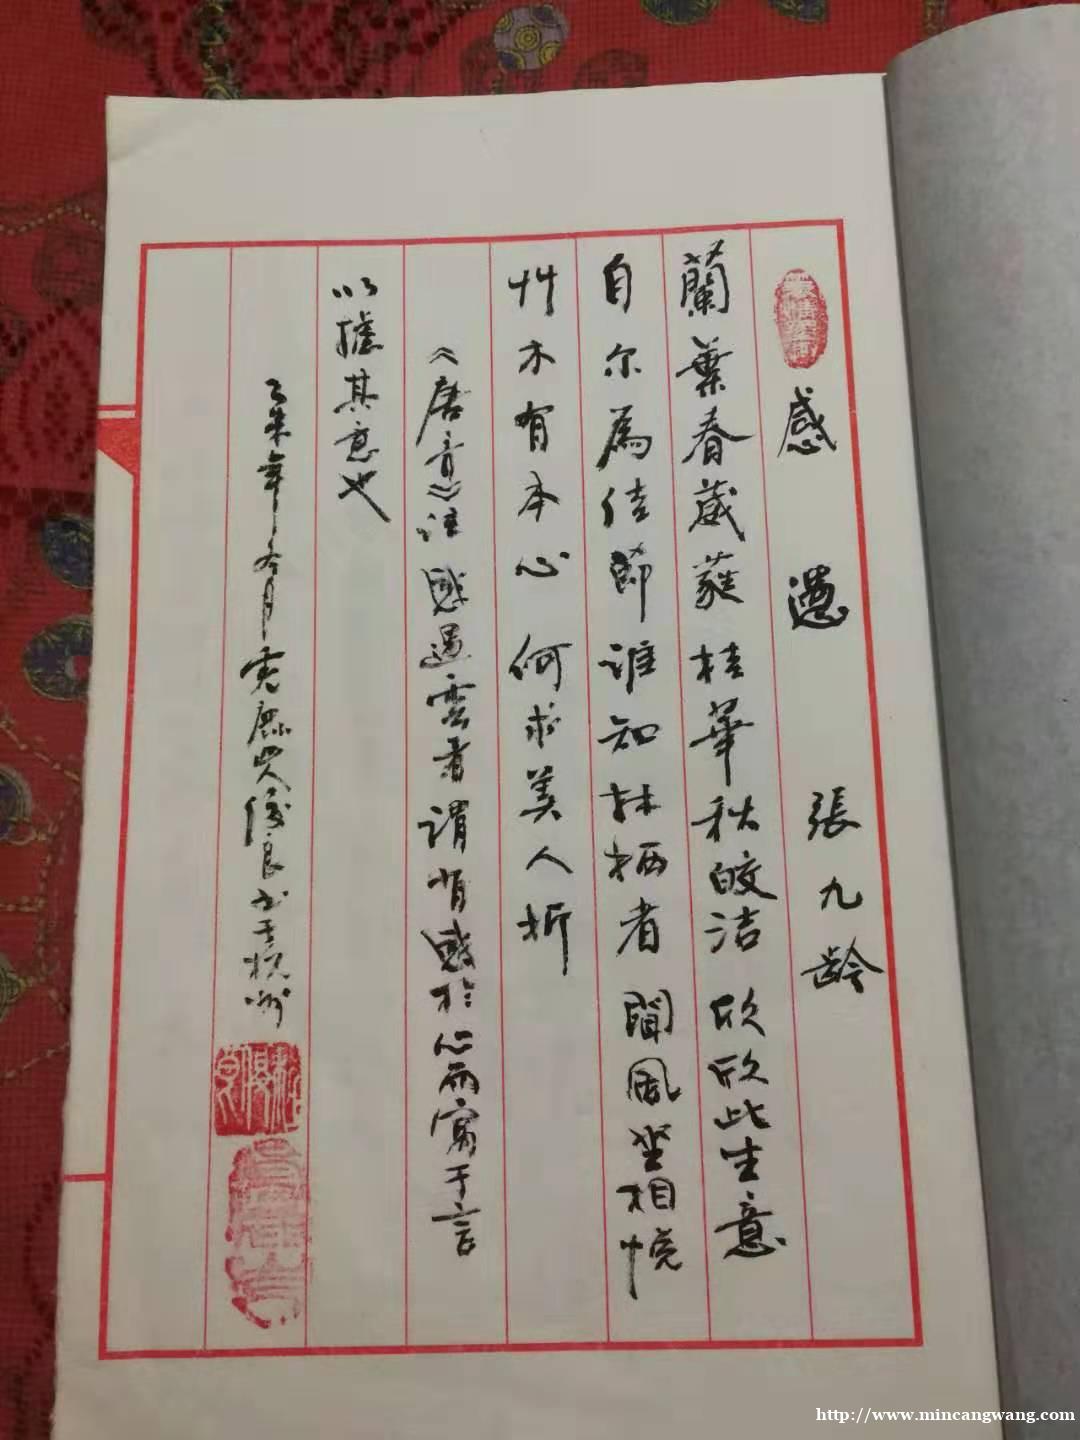 感遇 張九齡
蘭葉春葳蕤桂華秋皎洁欣欣此生意
自尔為佳節谁知林栖者聞風坐相悦
艸木有本心何求美人折
《唐音》注感遇云者谓有感於心而寓于言
以攄其意也
乙未年冬月 俊良书于杭州
http://www.mincangwang.com